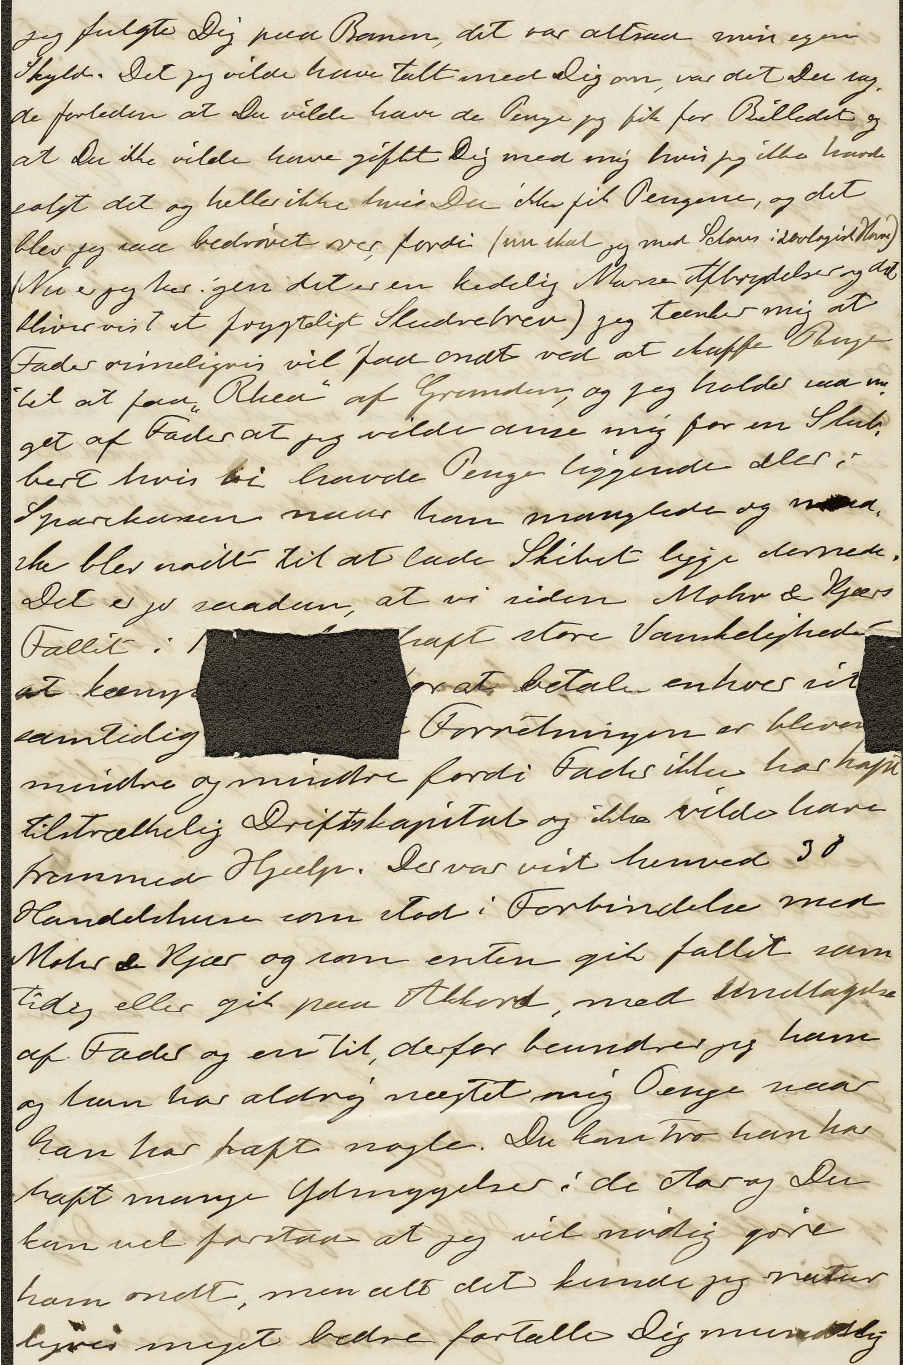 jeg fulgte Dig paa Banen, det var altsaa min egen
Skyld. Det jeg vilde have talt med Dig om, var det Du sag,
de forleden at Du vilde have de Penge jeg fik for Billedet og
at Du ikke vilde have giftet Dig med mig hvis jeg ikke havde
solgt det og heller ikke hvis Du ikke fik Pengene, og det
blev jeg saa bedrøvet over, fordi (nu skal jeg med i zoologisk Have)
(Nu er jeg her igen det er en kedelig Masse Afbrydelser og det
bliver vist et frygteligt Sludrebrev) jeg tænker mig at
Fader rimeligvis vil faa ondt ved at skaffe Penge
til at faa "Rhea" af Grunden, og jeg holder saa me,
get af Fader at jeg vilde anse mig for en Slub,
bert hvis vi havde Penge liggende eller i
Sparekassen naar han manglede og maa,
ske blev nødt til at lade Skibet ligge dernede.
Det er jo saadan, at vi siden Mohr & Kjærs
Fallit i haft store Vanskeligheder
at kæmpe for at betale enhver sit
samtidig Forretningen er bleven
mindre og mindre fordi Fader ikke har haft
tilstrækkelig Driftskapital og ikke vilde have
fremmed Hjælp. Der var vist henved 30
Handelshuse som stod i Forbindelse med
Mohr & Kjær og som enten gik fallit sam
tidig eller gik paa Akkord, med Undtagelse
af Fader og en til, derfor beundrer jeg ham
og han har aldrig nægtet mig Penge naar
han har haft nogle. Du kan tro han har
haft mange Ydmygelser i de Aar og Du
kan vel forstaa at jeg vil nødig gøre
ham ondt, men alt det kunde jeg natur
ligvis meget bedre fortalle Dig mundtlig